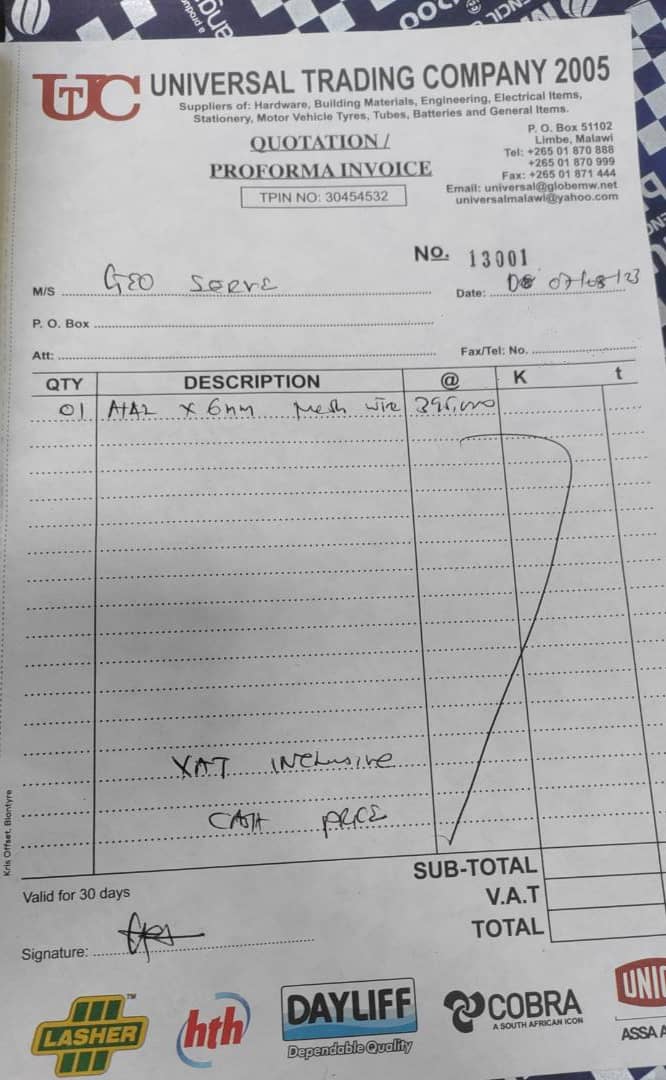 UTC UNIVERSAL TRADING COMPANY 2005
Suppliers of: Hardware, Building Materials, Engineering, Electrical Items,
Stationery, Motor Vehicle Tyres, Tubes, Batteries and General Items.
QUOTATION /
PROFORMA INVOICE
TPIN NO: 30454532
P. O. Box 51102
Limbe, Malawi
Tel: +265 01 870 888
+265 01 870 999
Fax: +265 01 871 444
Email: universal@globemw.net
universalmalawi@yahoo.com
NO. 13001
M/S GEO SERVE
Date: 07/08/23
P. O. Box
Att:
Fax/Tel: No.
QTY DESCRIPTION @ K t
01 x 6mm Mesh wire 395,000
VAT INCLUSIVE
CASH PRICE
SUB-TOTAL
V.A.T
TOTAL
Valid for 30 days
Signature:
Kris Offset, Blantyre
LASHER™
hth
DAYLIFF
Dependable Quality
COBRA
A SOUTH AFRICAN ICON
ASSA